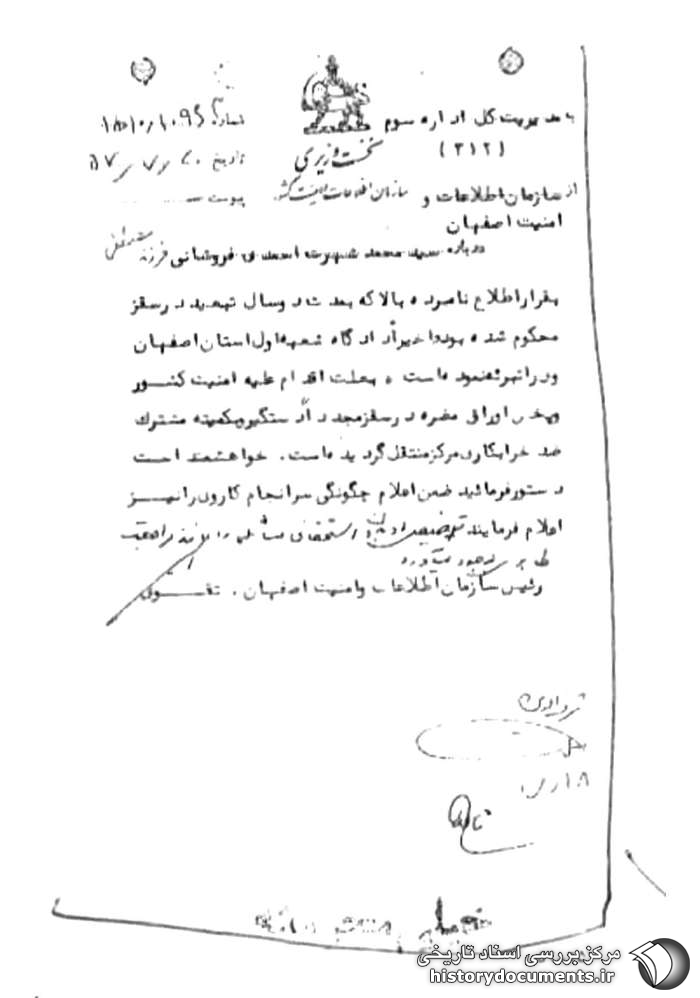 به مدیریت کل اداره سوم
(۳۱۲)
نخست وزیری
سازمان اطلاعات و امنیت کشور
شماره
تاریخ ۲۰ / ۷ / ۵۷
پیوست
از سازمان اطلاعات و
امنیت اصفهان
درباره سید محمد شهرت احمدی فروشانی فرزند مصطفی
بقرار اطلاع نامبرده بالا که بمدت دو سال تبعید در سقز
محکوم شده بود و اخیراً دادگاه شعبه اول استان اصفهان
وی را تبرئه نموده است به علت اقدام علیه امنیت کشور
و پخش اوراق مضره در سقز مجدداً دستگیر و بکمیته مشترک
ضد خرابکاری مرکز منتقل گردیده است . خواهشمند است
دستور فرمائید ضمن اعلام چگونگی سرانجام کار وی را نیز
اعلام فرمایند
رئیس سازمان اطلاعات و امنیت اصفهان . تقوی
مرکز بررسی اسناد تاریخی
historydocuments.ir